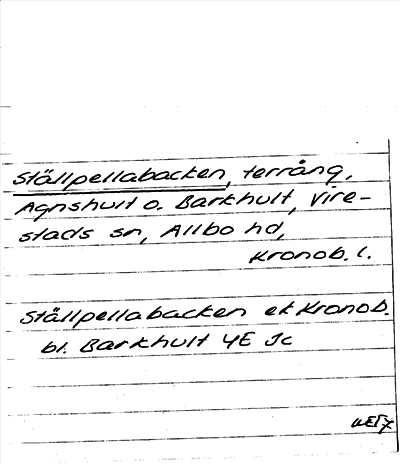 Ställpellabacken, terräng,
Agnshult o. Barkhult, Vire-
stads sn, Allbo hd,
Kronob. l.
Ställpellabacken ek Kronob.
bl. Barkhult 4E Jc